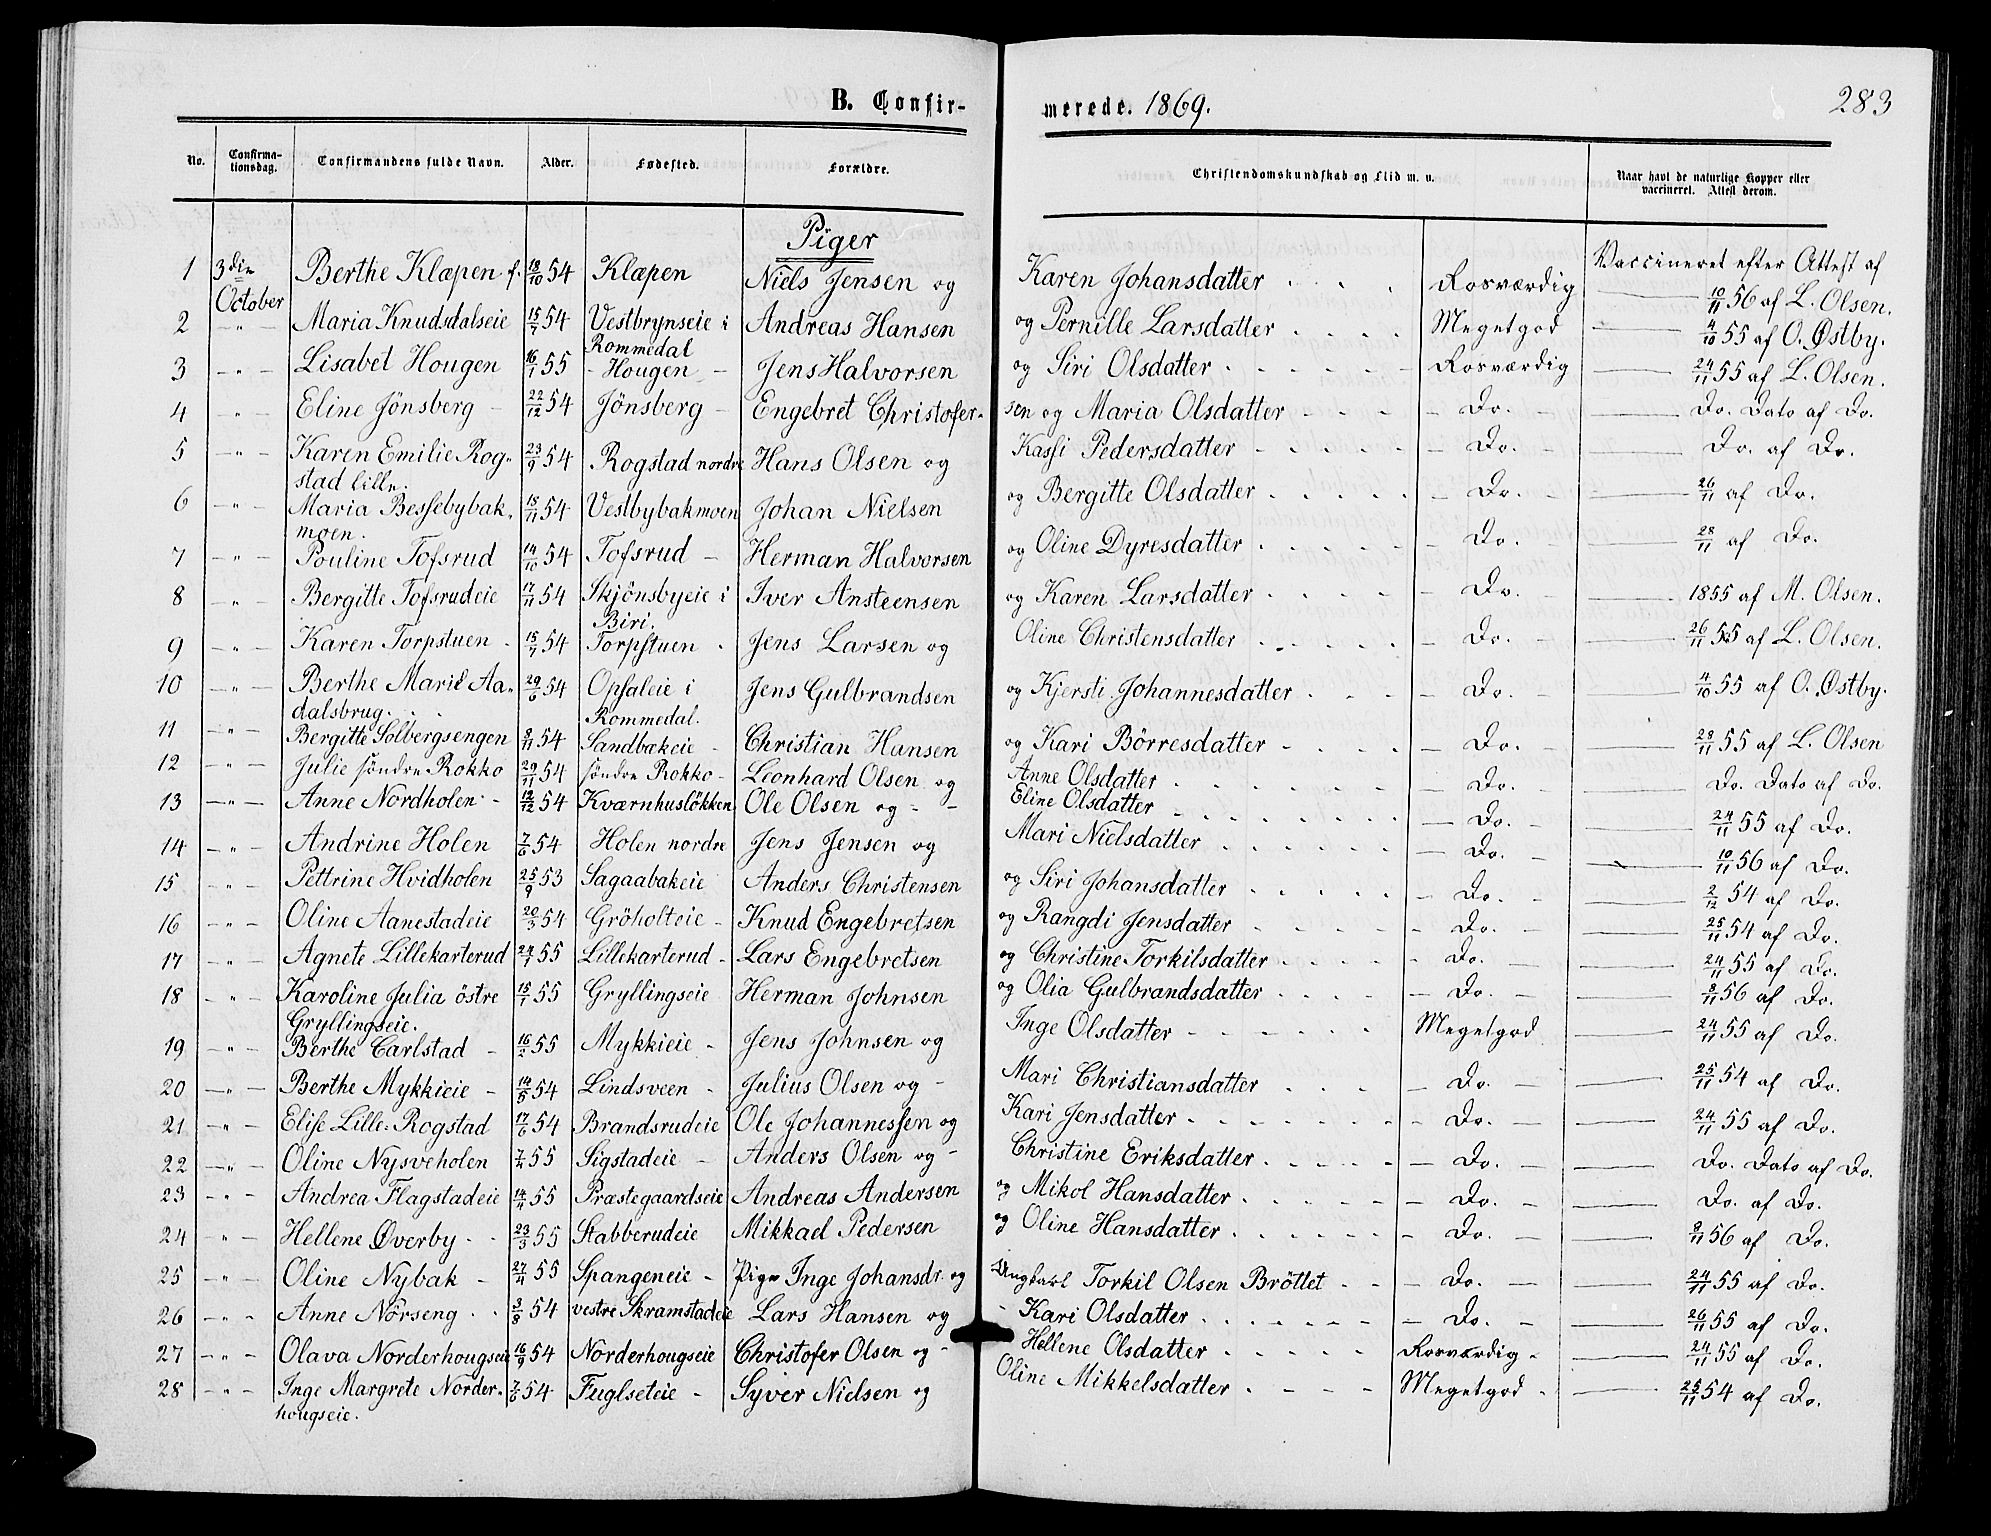 B. Confir- merede. 1869. 283
No. Confirma-tionsdag. Confirmandens fulde Navn. Alder. Fødested. Forældre. Christendomskundskab og Flid m. v. Naar havt de naturlige Kopper eller vaccineret. Attest derom.
Piger
Vaccineret efter Attest af
1 3die October Berthe Klæpen f. 18/10 54 Klæpen Niels Jensen og Karen Johansdatter Rosværdig 10/11 56 af L. Olsen.
2 " Maria Knudsdalseie 15/7 54 Vestbrynseie i Rommedal Andreas Hansen og Pernille Larsdatter Megetgod 4/10 55 af O. Østby.
3 " Lisabet Hougen 16/1 55 Hougen Jens Halvorsen og Siri Olsdatter Rosværdig 24/11 55 af L. Olsen.
4 " Eline Jönsberg 22/12 54 Jönsberg Engebret Christofersen og Maria Olsdatter Do. Do. Dato af Do.
5 " Karen Emilie Rogstad lille. 23/9 54 Rogstad nordre Hans Olsen og Kassi Pedersdatter Do. Do. af Do.
6 " Maria Bessebybakmoen. 15/11 54 Vestbybakmoen Johan Nielsen og Bergitte Olsdatter Do. 26/11 af Do.
7 " Pouline Tofsrud 14/10 54 Tofsrud Herman Halvorsen og Oline Dyresdatter Do. 28/11 af Do.
8 " Bergitte Tofsrudeie 17/11 54 Skjönsbyeie i Biri. Iver Ansteensen og Karen Larsdatter Do. 1855 af M. Olsen.
9 " Karen Torpstuen 15/7 54 Torpstuen Jens Larsen og Oline Christensdatter Do. 26/11 55 af L. Olsen.
10 " Berthe Marie Aadalsbrug. 29/6 54 Opsaleie i Rommedal. Jens Gulbrandsen og Kjersti Johannesdatter Do. 4/10 55 af O. Østby.
11 " Bergitte Solbergsengen 8/11 54 Sandbækeie Christian Hansen og Kari Börresdatter Do. 28/11 55 af L. Olsen
12 " Julie søndre Rokko 29/11 54 søndre Rokko Leonhard Olsen og Anne Olsdatter Do. Do. Dato af Do.
13 " Anne Nordholen 12/12 54 Kværnhuslökken Ole Olsen og Eline Olsdatter Do. 24/11 55 af Do.
14 " Andrine Holen 7/6 54 Holen nordre Jens Jensen og Mari Nielsdatter Do. 10/11 56 af Do.
15 " Pettrine Hvidholen 25/9 53 Sagaabakeie Anders Christensen og Siri Johansdatter Do. 2/12 54 af Do.
16 " Oline Aanestadeie 20/3 54 Gröholteie Knud Engebretsen og Rangdi Jensdatter Do. 25/11 54 af Do.
17 " Agnete Lillekarterud 24/1 55 Lillekarterud Lars Engebretsen og Christine Torkilsdatter Do. 24/11 55 af Do.
18 " Karoline Julia östre Gryllingseie. 15/1 55 Gryllingseie Herman Johnsen og Olia Gulbrandsdatter Do. 8/11 56 af Do.
19 " Berthe Carlstad 16/2 55 Mykkieie Jens Johnsen og Inge Olsdatter Megetgod 24/11 55 af Do.
20 " Berthe Mykkieie 14/5 54 Lindsveen Julius Olsen og Mari Christiansdatter Do. 25/11 54 af Do.
21 " Elise Lille-Rogstad 17/6 54 Brandsrudeie Ole Johannessen og Kari Jensdatter Do. 24/11 55 af Do.
22 " Oline Nysveholen 7/4 55 Sigstadeie Anders Olsen og Christine Eriksdatter Do. Do. Dato af Do.
23 " Andrea Flagstadeie 14/4 55 Præstegaardseie Andreas Andersen og Mikol Hansdatter Do. Do. af Do.
24 " Hellene Øverby 23/3 55 Stabberudeie Mikkael Pedersen og Oline Hansdatter Do. 8/11 56 af Do.
25 " Oline Nybak 27/4 55 Spangeneie Pige Inge Johansdr. og Ungkarl Torkil Olsen Bröttet Do. 24/11 55 af Do.
26 " Anne Nörseng 3/8 54 vestre Skramstadeie Lars Hansen og Kari Olsdatter Do. 26/11 55 af Do.
27 " Olava Norderhougseie 16/9 54 Norderhougseie Christofer Olsen og Hellene Olsdatter Rosværdig 24/11 55 af Do.
28 " Inge Margrete Norderhougseie. 7/6 54 Fuglseteie Syver Nielsen og Oline Mikkelsdatter Megetgod 25/11 54 af Do.